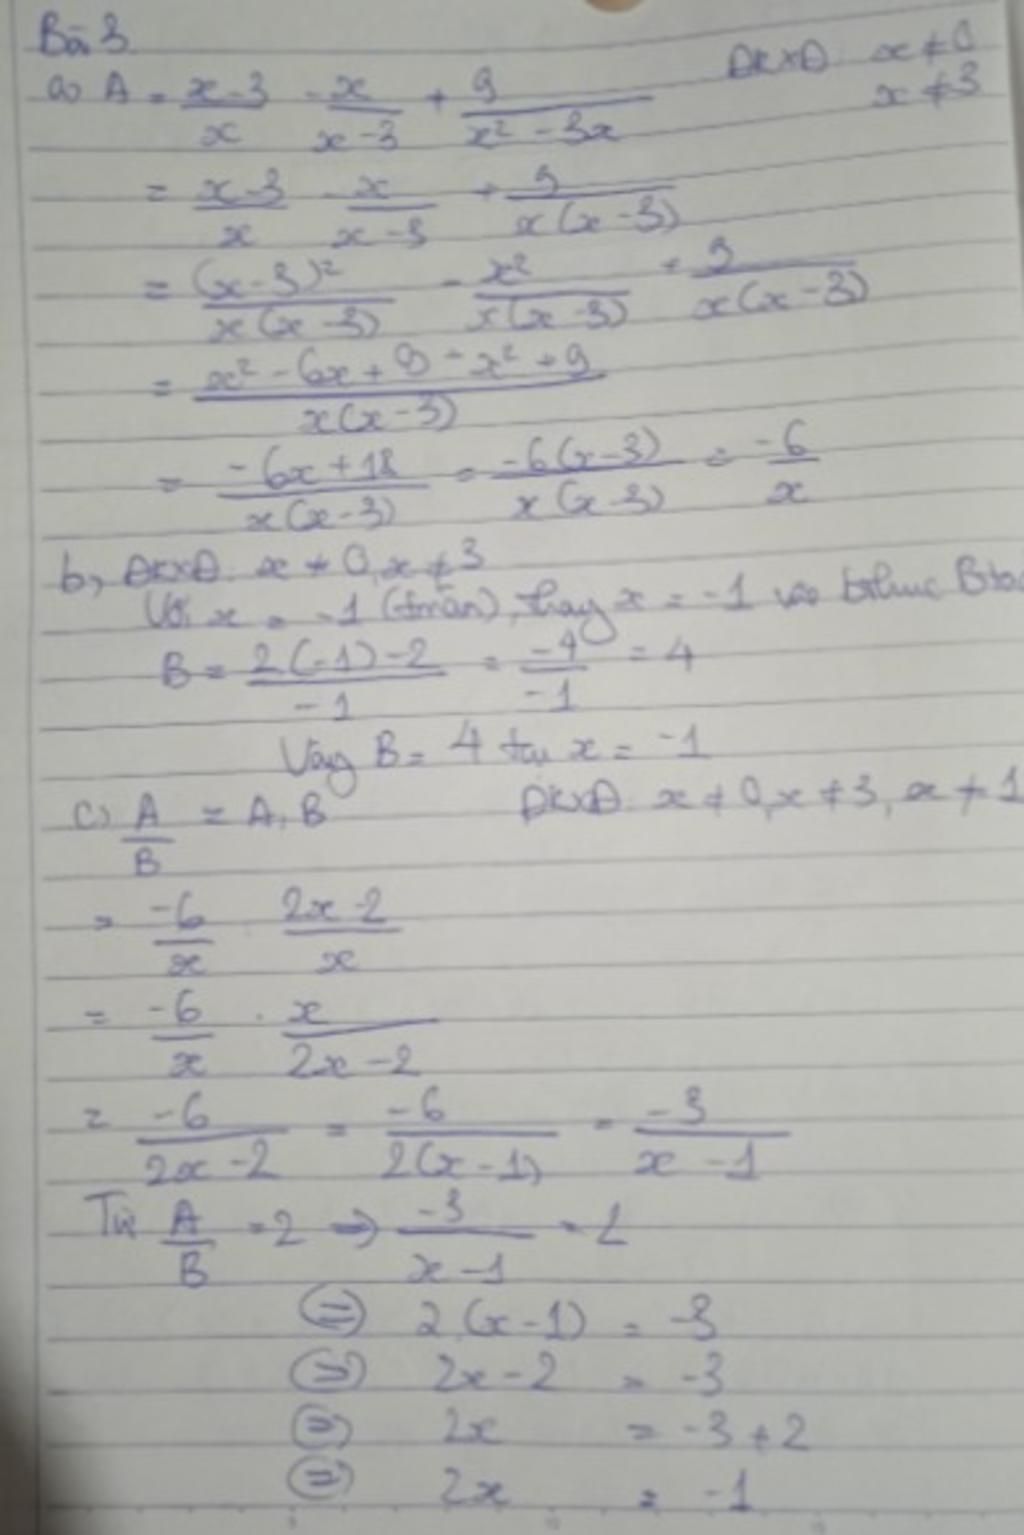 Bài 3
a) A = \frac{x-3}{x} - \frac{x}{x-3} + \frac{9}{x² - 3x} ĐKXĐ: x ≠ 0
x ≠ 3
= \frac{x-3}{x} - \frac{x}{x-3} + \frac{9}{x(x-3)}
= \frac{(x-3)²}{x(x-3)} - \frac{x²}{x(x-3)} + \frac{9}{x(x-3)}
= \frac{x² - 6x + 9 - x² + 9}{x(x-3)}
= \frac{-6x + 18}{x(x-3)} = \frac{-6(x-3)}{x(x-3)} = \frac{-6}{x}
b, ĐKXĐ: x ≠ 0, x ≠ 3
Với x = -1 (tmãn), thay x = -1 vào bthức B
B = \frac{2(-1)-2}{-1} = \frac{-4}{-1} = 4
Vậy B = 4 tại x = -1
c) \frac{A}{B} = A : B ĐKXĐ: x ≠ 0, x ≠ 3, x ≠ 1
= \frac{-6}{x} : \frac{2x-2}{x}
= \frac{-6}{x} . \frac{x}{2x-2}
= \frac{-6}{2x-2} = \frac{-6}{2(x-1)} = \frac{-3}{x-1}
Từ \frac{A}{B} = 2 ⇒ \frac{-3}{x-1} = 2
⇔ 2(x-1) = -3
⇔ 2x-2 = -3
⇔ 2x = -3+2
⇔ 2x = -1